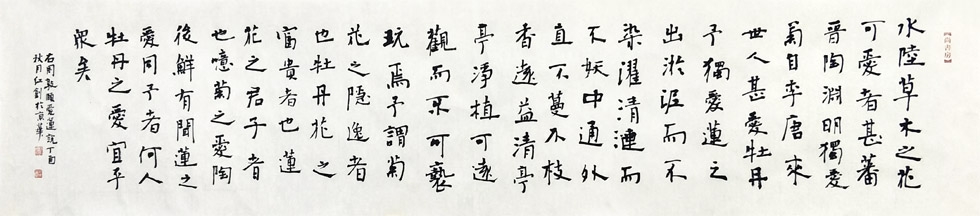 尚書房
水陸草木之花
可愛者甚蕃
晉陶淵明獨愛
菊自李唐來
世人甚愛牡丹
予獨愛蓮之
出淤泥而不
染濯清漣而
不妖中通外
直不蔓不枝
香遠益清亭
亭淨植可遠
觀而不可褻
玩焉予謂菊
花之隱逸者
也牡丹花之
富貴者也蓮
花之君子者
也噫菊之愛陶
後鮮有聞蓮之
愛同予者何人
牡丹之愛宜乎
眾矣
右周敦頤愛蓮說丁酉
秋月紅劍於京華